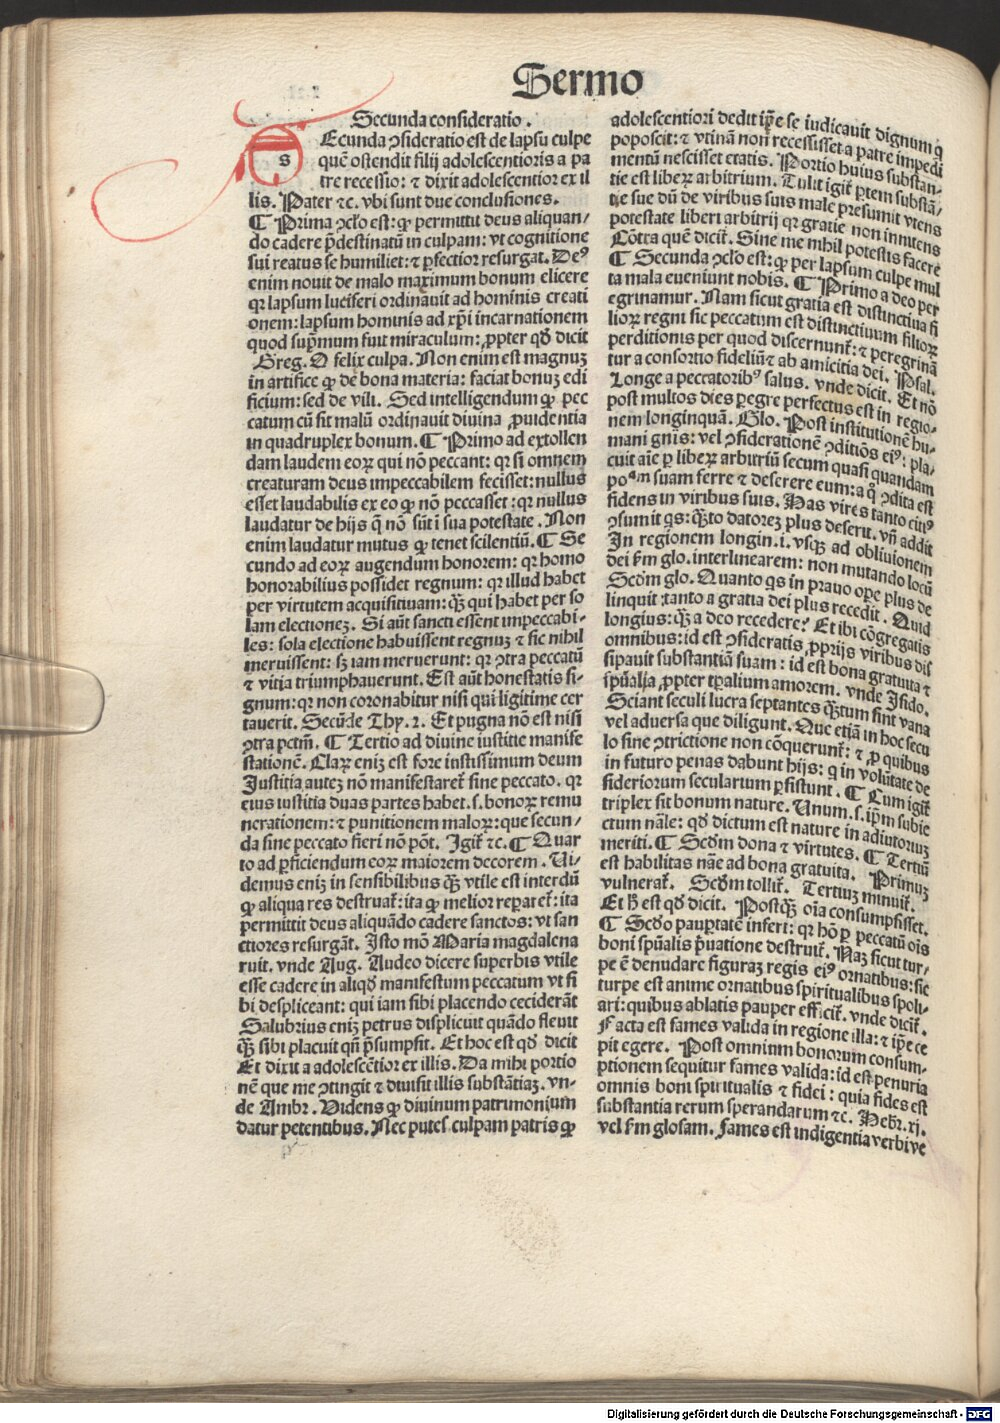 Sermo
Secunda consideratio.
SEcunda ꝯsideratio est de lapsu culpe
quē ostendit filij adolescentioris a pa
tre recessio: ⁊ dixit adolescentior ex il
lis. Pater ⁊c. vbi sunt due conclusiones.
¶ Prima ꝯclo est: ꝙ permittit deus aliquan/
do cadere p̄destinatū in culpam: vt cognitione
sui reatus se humiliet: ⁊ ꝑfectior resurgat. Deꝰ
enim nouit de malo maximum bonum elicere
qꝛ lapsum luciferi ordinauit ad hominis creati
onem: lapsum hominis ad xp̄i incarnationem
quod sup̄mum fuit miraculum: ꝓpter qd̄ dicit
Greg. O felix culpa. Non enim est magnuꝫ
in artifice ꝙ de bona materia: faciat bonuꝫ edi
ficium: sed de vili. Sed intelligendum ꝙ pec
catum cū sit malū ordinauit diuina ꝓuidentia
in quadruplex bonum. ¶ Primo ad extollen
dam laudem eoꝝ qui nō peccant: qꝛ si omnem
creaturam deus impeccabilem fecisset: nullus
esset laudabilis ex eo ꝙ nō peccasset: qꝛ nullus
laudatur de hijs q̄ nō sūt ī sua potestate. Non
enim laudatur mutus ꝙ tenet scilentiū. ¶ Se
cundo ad eoꝝ augendum honorem: qꝛ homo
honorabilius possidet regnum: qꝛ illud habet
per virtutem acquisitiuam: qꝫ qui habet per so
lam electioneꝫ. Si aūt sancti essent impeccabi-
les: sola electione habuissent regnuꝫ ⁊ sic nihil
meruissent: sꝫ iam meruerunt: qꝛ ꝯtra peccatū
⁊ vitia triumphauerunt. Est aūt honestatis si-
gnum: qꝛ non coronabitur nisi qui ligitime cer
tauerit. Secūde Thy. 2. Et pugna nō est nisi
ꝯtra pctm̄. ¶ Tertio ad diuine iustitie manife
stationē. Claꝝ eniꝫ est fore iustissimum deum
Justitia auteꝫ nō manifestaret̄ sine peccato. qꝛ
eius iustitia duas partes habet. s. honoꝝ remu
nerationem: ⁊ punitionem maloꝝ: que secun/
da sine peccato fieri nō pōt. Igit̄ ⁊c. ¶ Quar
to ad ꝑficiendum eoꝝ maiorem decorem. Ui/
demus eniꝫ in sensibilibus qꝫ vtile est interdū
ꝙ aliqua res destruat̄: ita ꝙ melior reparet̄: ita
permittit deus aliquādo cadere sanctos: vt san
ctiores resurgāt. Isto mō Maria magdalena
ruit. vnde Aug. Audeo dicere superbis vtile
esse cadere in aliqd̄ manifestum peccatum vt si
bi despliceant: qui iam sibi placendo ceciderāt
Salubrius eniꝫ petrus displicuit quādo fleuit
qꝫ sibi placuit qn̄ p̄sumpsit. Et hoc est qd̄ dicit
Et dixit a adolescētior ex illis. Da mihi portio
nē que me ꝯtingit ⁊ diuisit illis substātiaꝫ. vn-
de Ambr. Uidens ꝙ diuinum patrimonium
datur petentibus. Nec putes culpam patris ꝙ
adolescentiori dedit ip̄e se iudicauit dignum q̄
poposcit: ⁊ vtinā non recessisset a patre impedi
mentū nescisset etatis. Portio huius substan-
tie est liberꝝ arbitrium. Tulit igit̄ ꝑtem substā/
tie sue dū de viribus suis male p̄resumit vtens
potestate liberi arbitrij qꝛ gratie non innitens
Cōtra quē dicit̄. Sine me nihil potestis facere
¶ Secunda ꝯclo est: ꝙ per lapsum culpe mul
ta mala eueniunt nobis. ¶ Primo a deo per
egrinamur. Nam sicut gratia est distinctiua fi
lioꝝ regni sic peccatum est distinctiuum filioꝝ
perditionis per quod discernunt̄: ⁊ peregrinā
tur a consortio fideliū ⁊ ab amicitia dei. Psal.
Longe a peccatoribꝰ salus. vnde dicit. Et nō
post multos dies ꝑegre perfectus est in regio-
nem longinquā. Glo. Post institutionē hu-
mani gn̄is: vel ꝯsiderationē ꝯditiōs eiꝰ: pla-
cuit aīe ꝑ liberꝝ arbitriū secum quasi quandam
poᵃm suam ferre ⁊ deserere eum: a q̊ ꝯdita est
fidens in viribus suis. Has vires tanto citiꝰ
ꝯsumit qs: qꝫto datoreꝫ plus deserit. vn̄ addit
In regionem longin. i. vsqꝫ ad obliuionem
dei sm̄ glo. interlinearem: non mutando locū
Scd̄m glo. Quanto qs in prauo oꝑe plus de
linquit: tanto a gratia dei plus recedit. Quid
longius: qꝫ a deo recedere? Et ibi cōgregatis
omnibus: id est ꝯsideratis ꝓprijs viribus dis
sipauit substantiā suam: id est bona gratuita ⁊
spūalia ꝓpter tꝑalium amorem. vnde Isido.
Sciant seculi lucra septantes qꝫtum sint vana
vel aduersa que diligunt. Que etiā in hoc secu
lo sine ꝯtrictione non cōquerunt̄: ⁊ ꝓ quibus
in futuro penas dabunt hijs: q̄ in volūtate de
sideriorum secularium ꝑsistunt. ¶ Cum igit̄
triplex sit bonum nature. Unum. s. ip̄m subie
ctum nāle: qd̄ dictum est nature in adiutoriuꝫ
meriti. ¶ Scd̄m dona ⁊ virtutes. ¶ Tertiū
est habilitas nāe ad bona gratuita. Primuꝫ
vulnerat̄. Scd̄m tollit̄. Tertiuꝫ minuit̄.
Et h̄ est qd̄ dicit. Postqꝫ oīa consumpsisset.
¶ Scd̄o pauꝑtatē inferi: qꝛ hō ꝑ peccatū oīs
boni spūalis p̄uatione destruit̄. Naꝫ sicut tur/
pe ē denudare figuraꝫ regis eiꝰ ornatibus: sic
turpe est anime ornatibus spiritualibus spoli-
ari: quibus ablatis pauper efficit̄. vnde dicit̄.
Facta est fames valida in regione illa: ⁊ ip̄e ce
pit egere. Post omnium bonorum consum-
ptionem sequitur fames valida: id est penuria
omnis boni spiritualis ⁊ fidei: quia fides est
substantia rerum sperandarum ⁊c. Hebr. xj.
vel sm̄ glosam. Fames est indigentia verbi ve
Digitalisierung gefördert durch die Deutsche Forschungsgemeinschaft - DFG